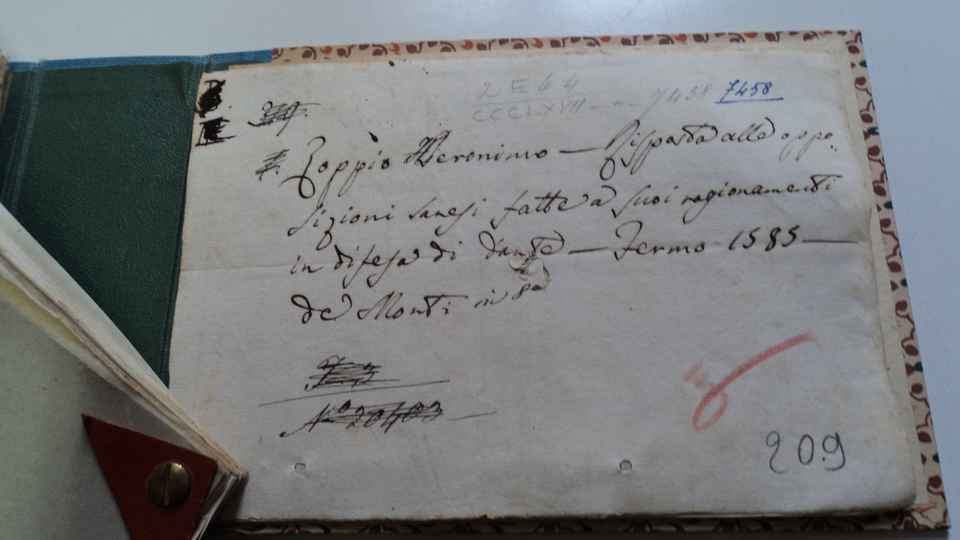 2 E 64
CCCLXVII — 7458 7458
Zoppio Hieronimo — Risposta alle oppo-
sizioni sanesi fatte a suoi ragionamenti
in difesa di dante — Fermo 1585 —
de Monti in 8º
Nº 20403
209